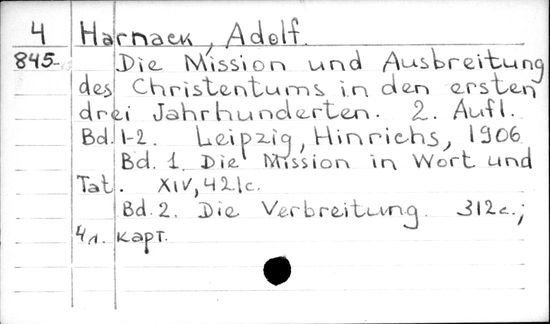 4 Harnack, Adolf.
845 Die Mission und Ausbreitung
des Christentums in den ersten
drei Jahrhunderten. 2. Aufl.
Bd. 1-2. Leipzig, Hinrichs, 1906
Bd. 1. Die Mission in Wort und
Tat. XIV, 421c.
Bd. 2. Die Verbreitung. 312c.;
4л. карт.